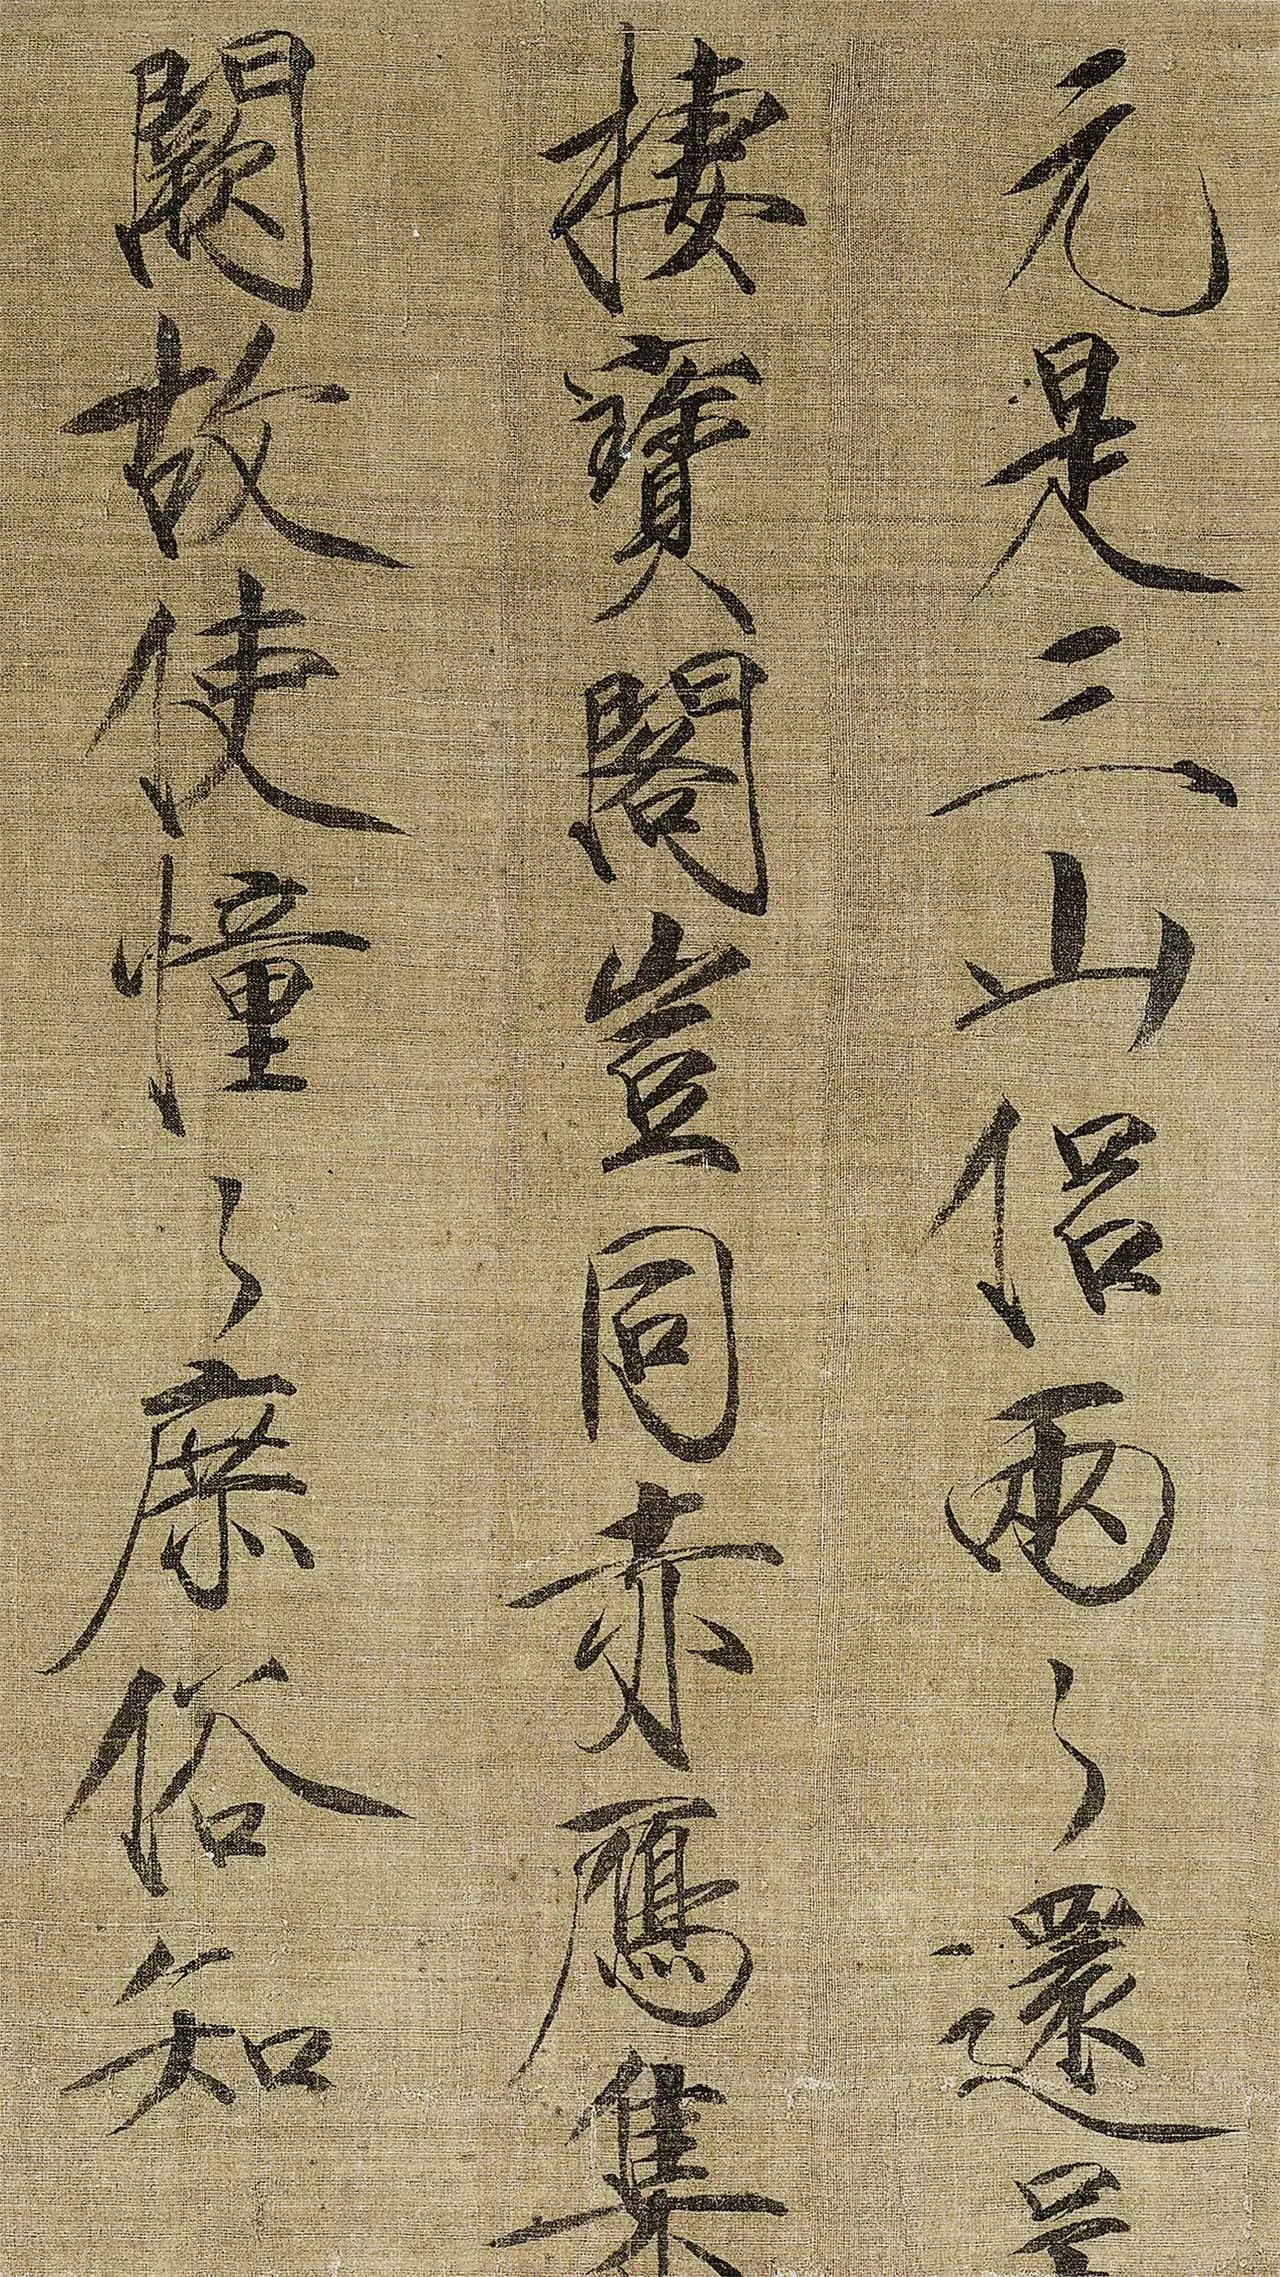 元是三山侶兩〻還呈
棲寶閣豈同赤鴈集
闕故使憧〻庶俗知